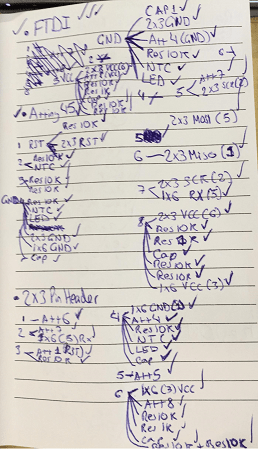 FTDI
GND
3 VCC
2x3 VCC(6)
Res 10K
Res 1K
Res 10K
Att
1 RST
Res 10K
2x3 RST
2
Res 10K
NTC
3 Res 10K
GND
Res 10K
NTC
LED
2x3 GND
1x6 GND
Cap
2x3 Pin Header
1 - Att 6
2
1x6 (5) Rx
3 - Att 1 (RST)
Res 10K
CAP 1
2x3 GND
Att 4 (GND)
Res 10K
NTC
LED
4
5
Att 7
2x3 SCK
5
2x3 MOSI (5)
6 - 2x3 Miso (1)
7
2x3 SCK (2)
1x6 RX (5)
8
2x3 VCC (6)
Res 10K
Res 1K
Cap
Res 10K
Res 10K
1x6 VCC (3)
4
1x6 GND
Att 4
Res 10K
NTC
LED
Cap
5 - Att 5
6
1x6 (3) VCC
Att 8
Res 10K
Res 1K
Cap
Res 10K + Res 10K